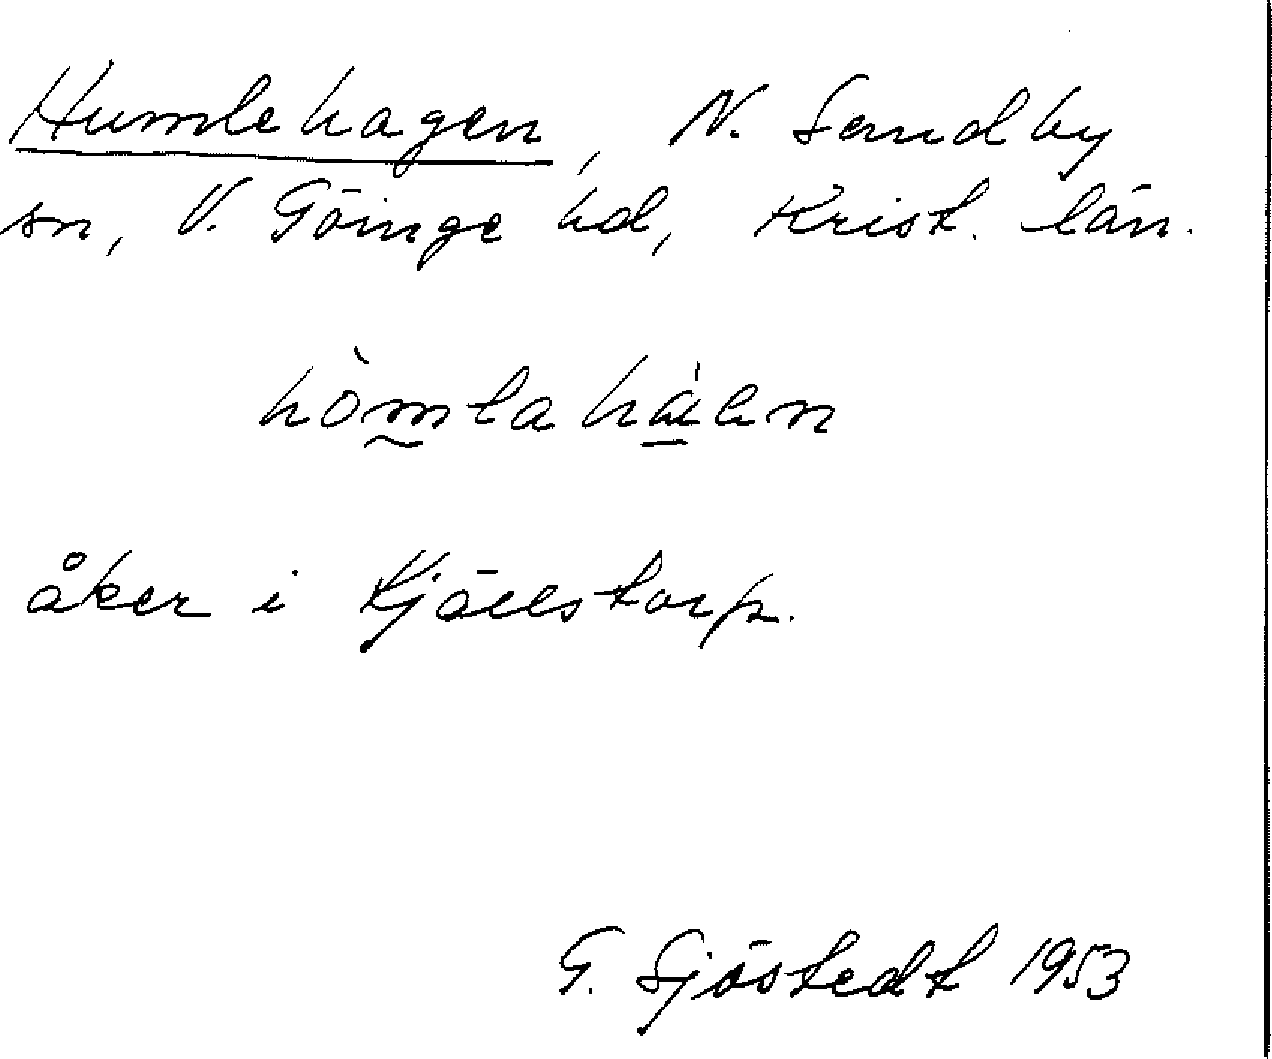 Humlehagen, N. Sandby
sn, V. Göinge hd, Krist. län.
hòmlahàen
åker i Kjällstorp.
G. Sjöstedt 1953